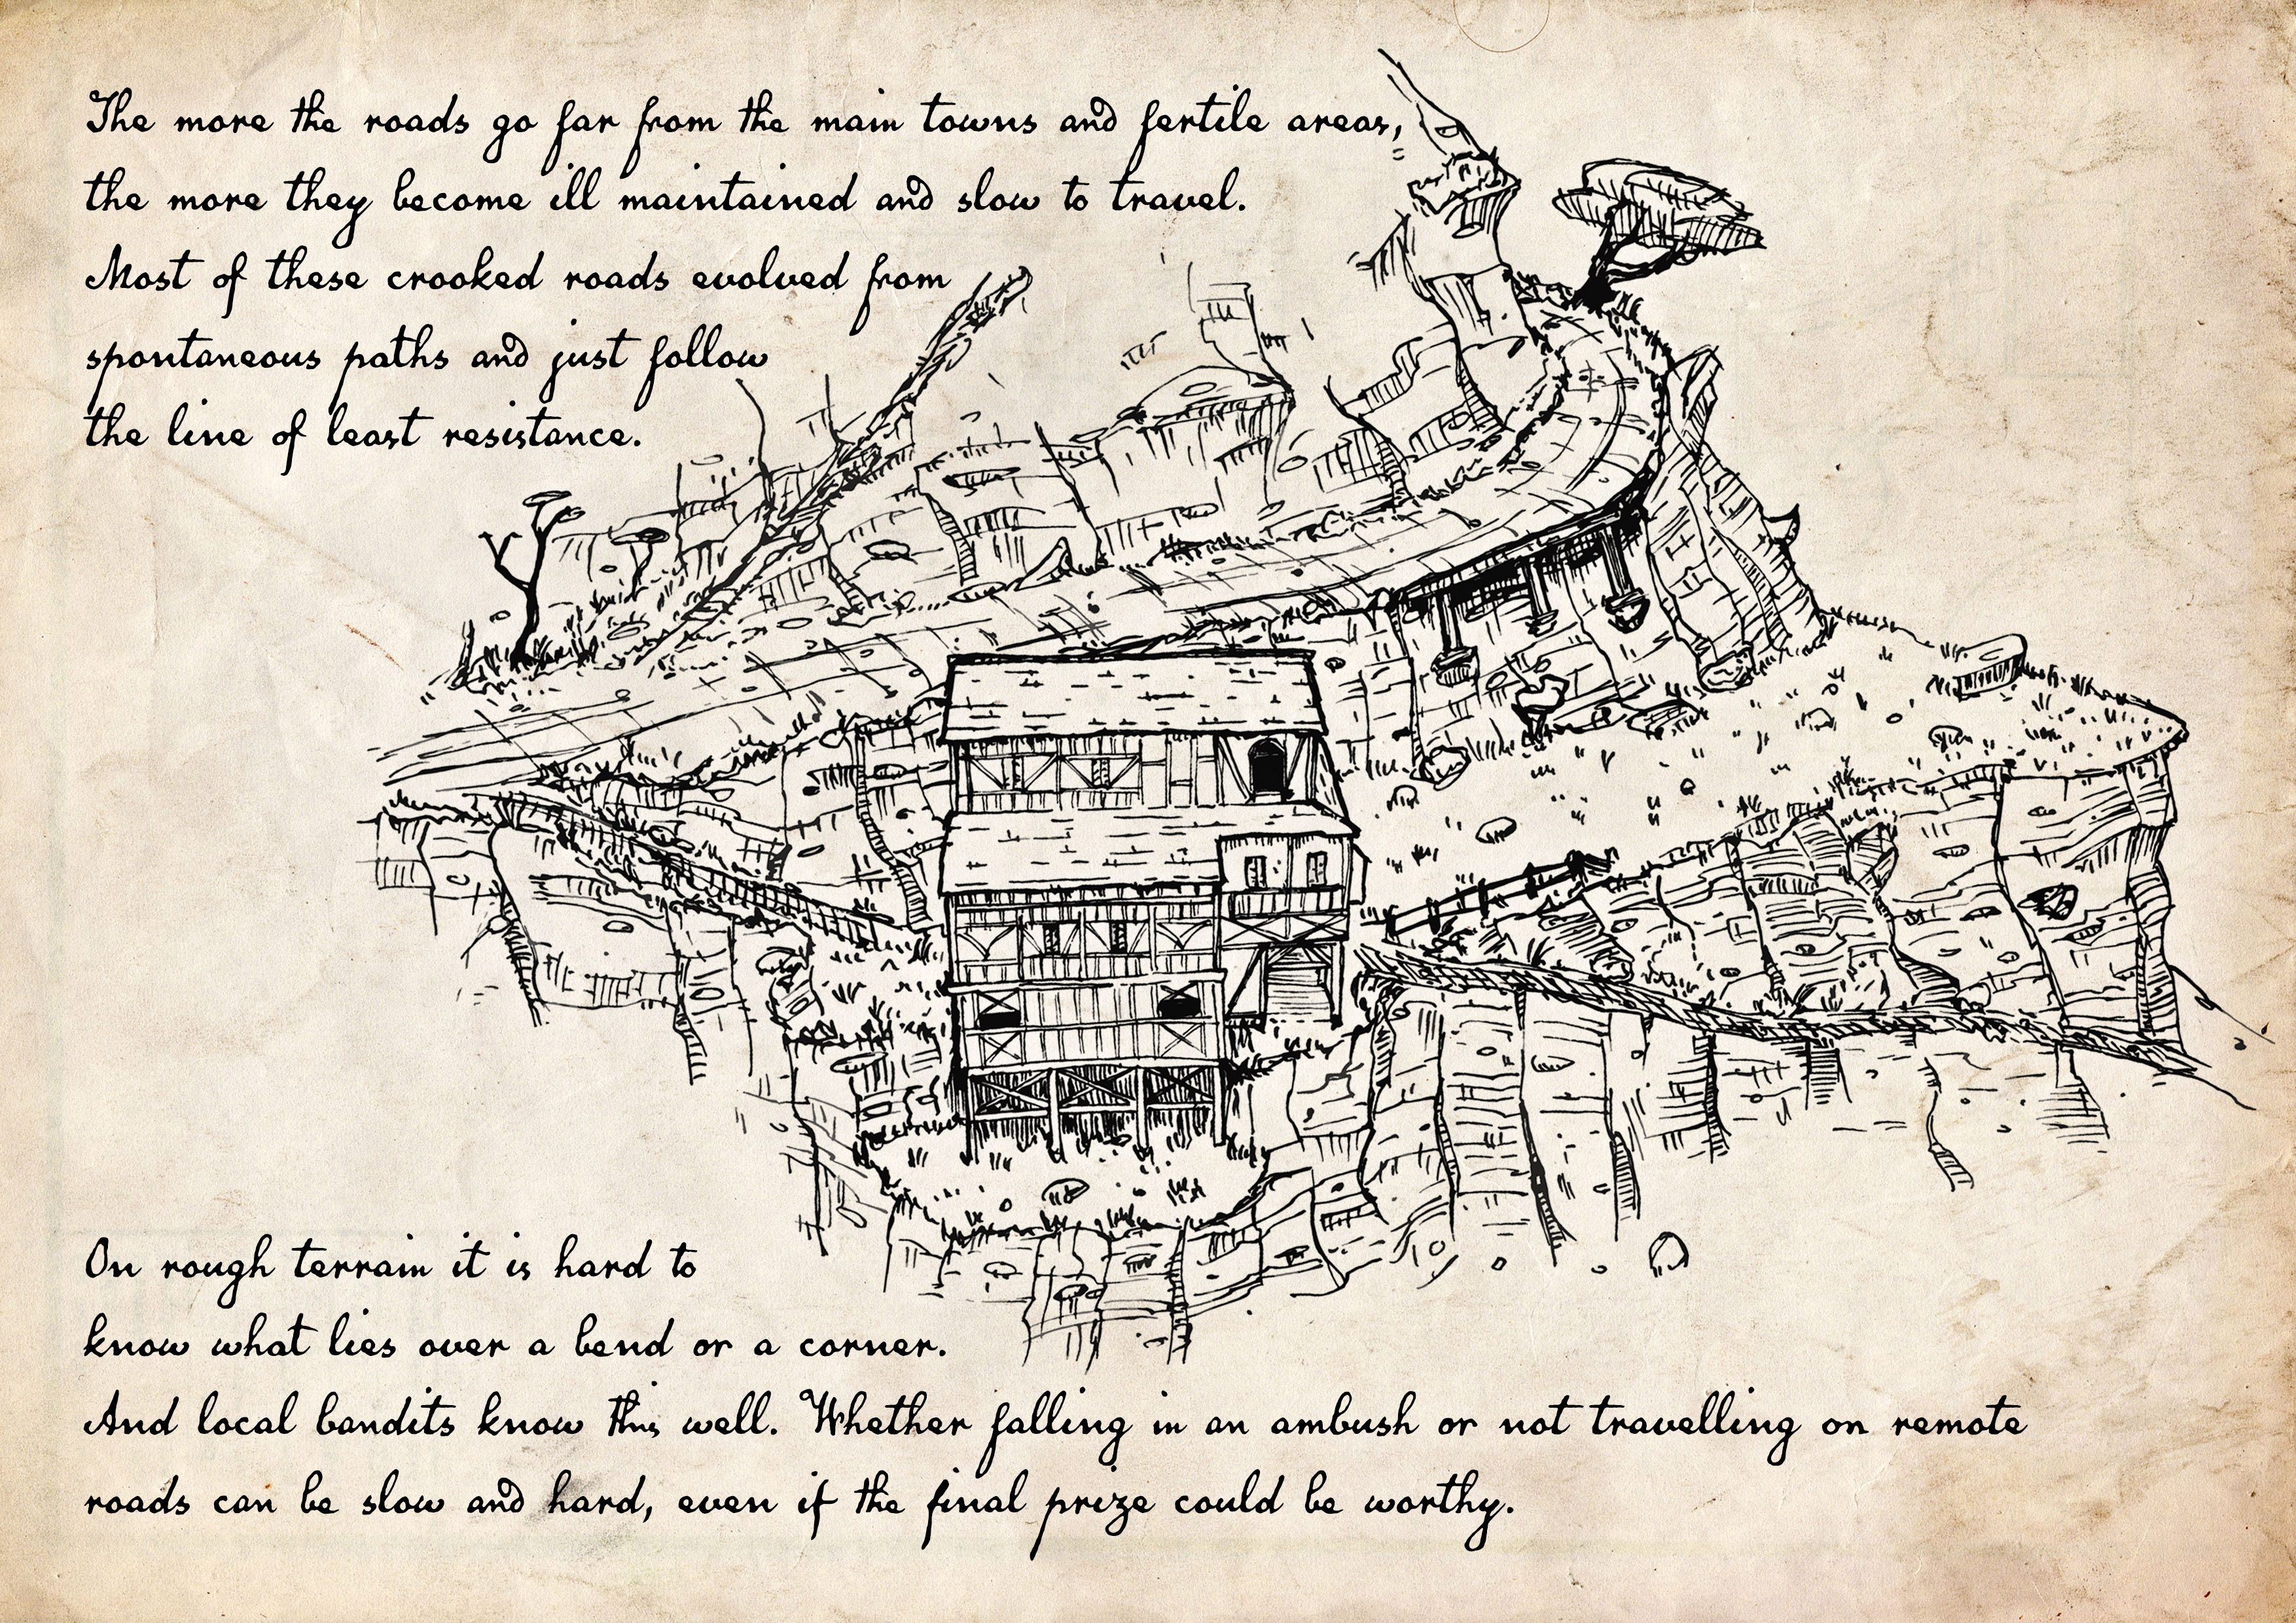 The more the roads go far from the main towns and fertile areas,
the more they become ill maintained and slow to travel.
Most of these crooked roads evolved from
spontaneous paths and just follow
the line of least resistance.
On rough terrain it is hard to
know what lies over a bend or a corner.
And local bandits know this well. Whether falling in an ambush or not travelling on remote
roads can be slow and hard, even if the final prize could be worthy.